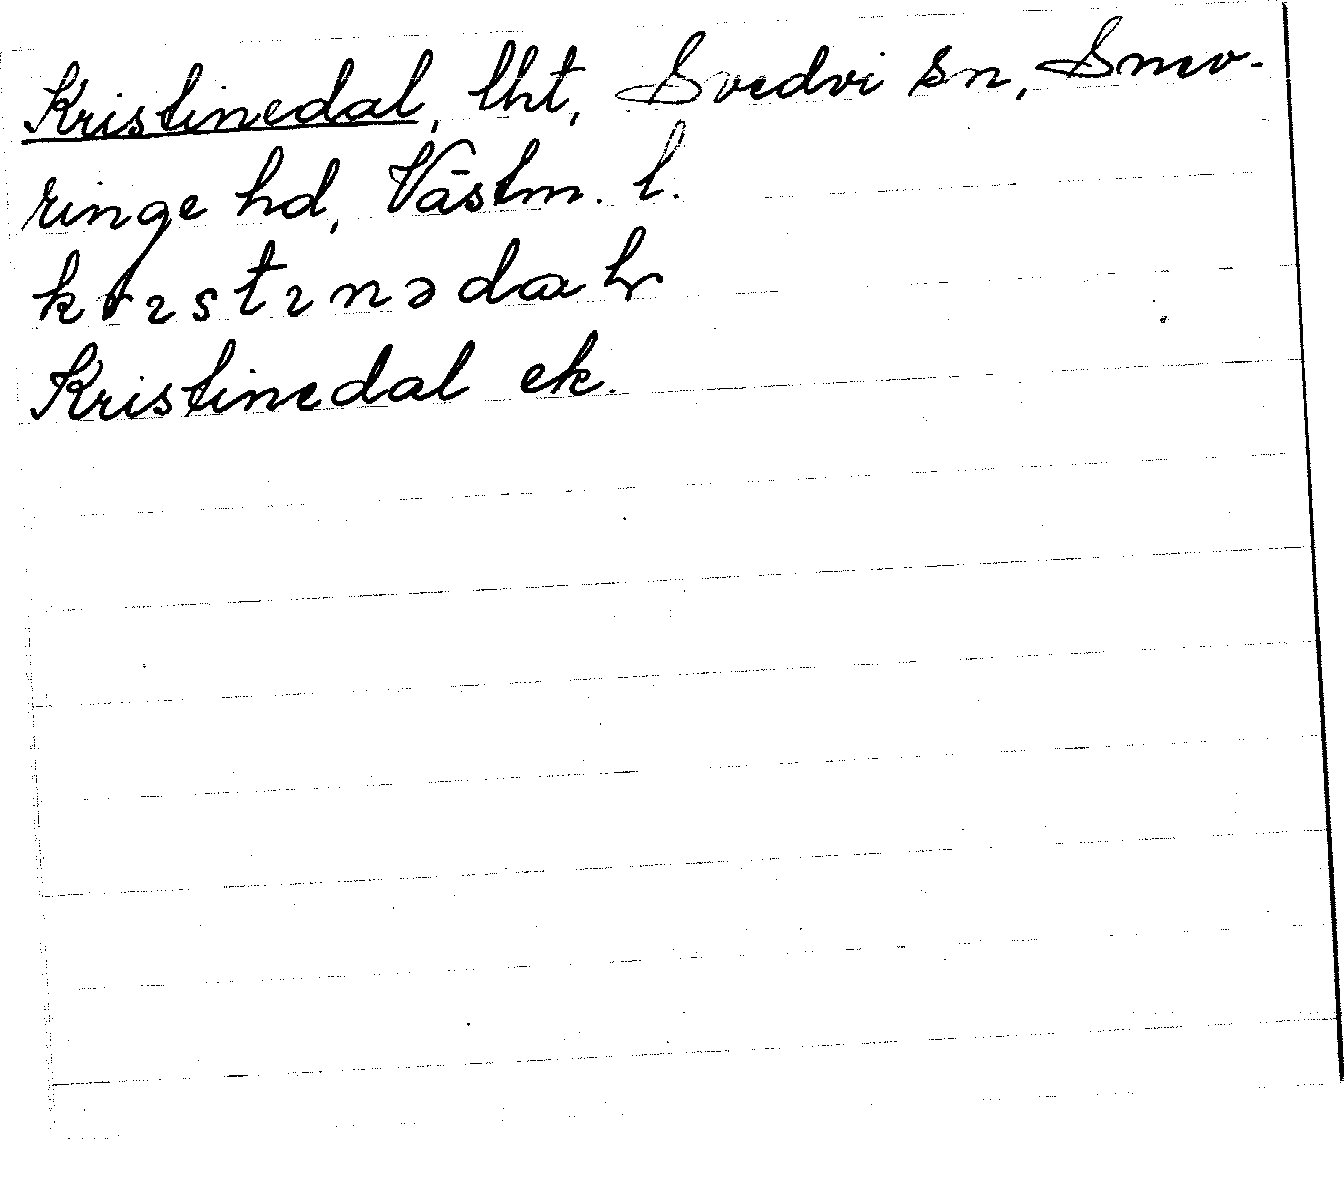 Kristinedal, lht, Svedvi sn, Snev-
ringe hd, Västm. l.
krıstınədαl
Kristinedal ek.